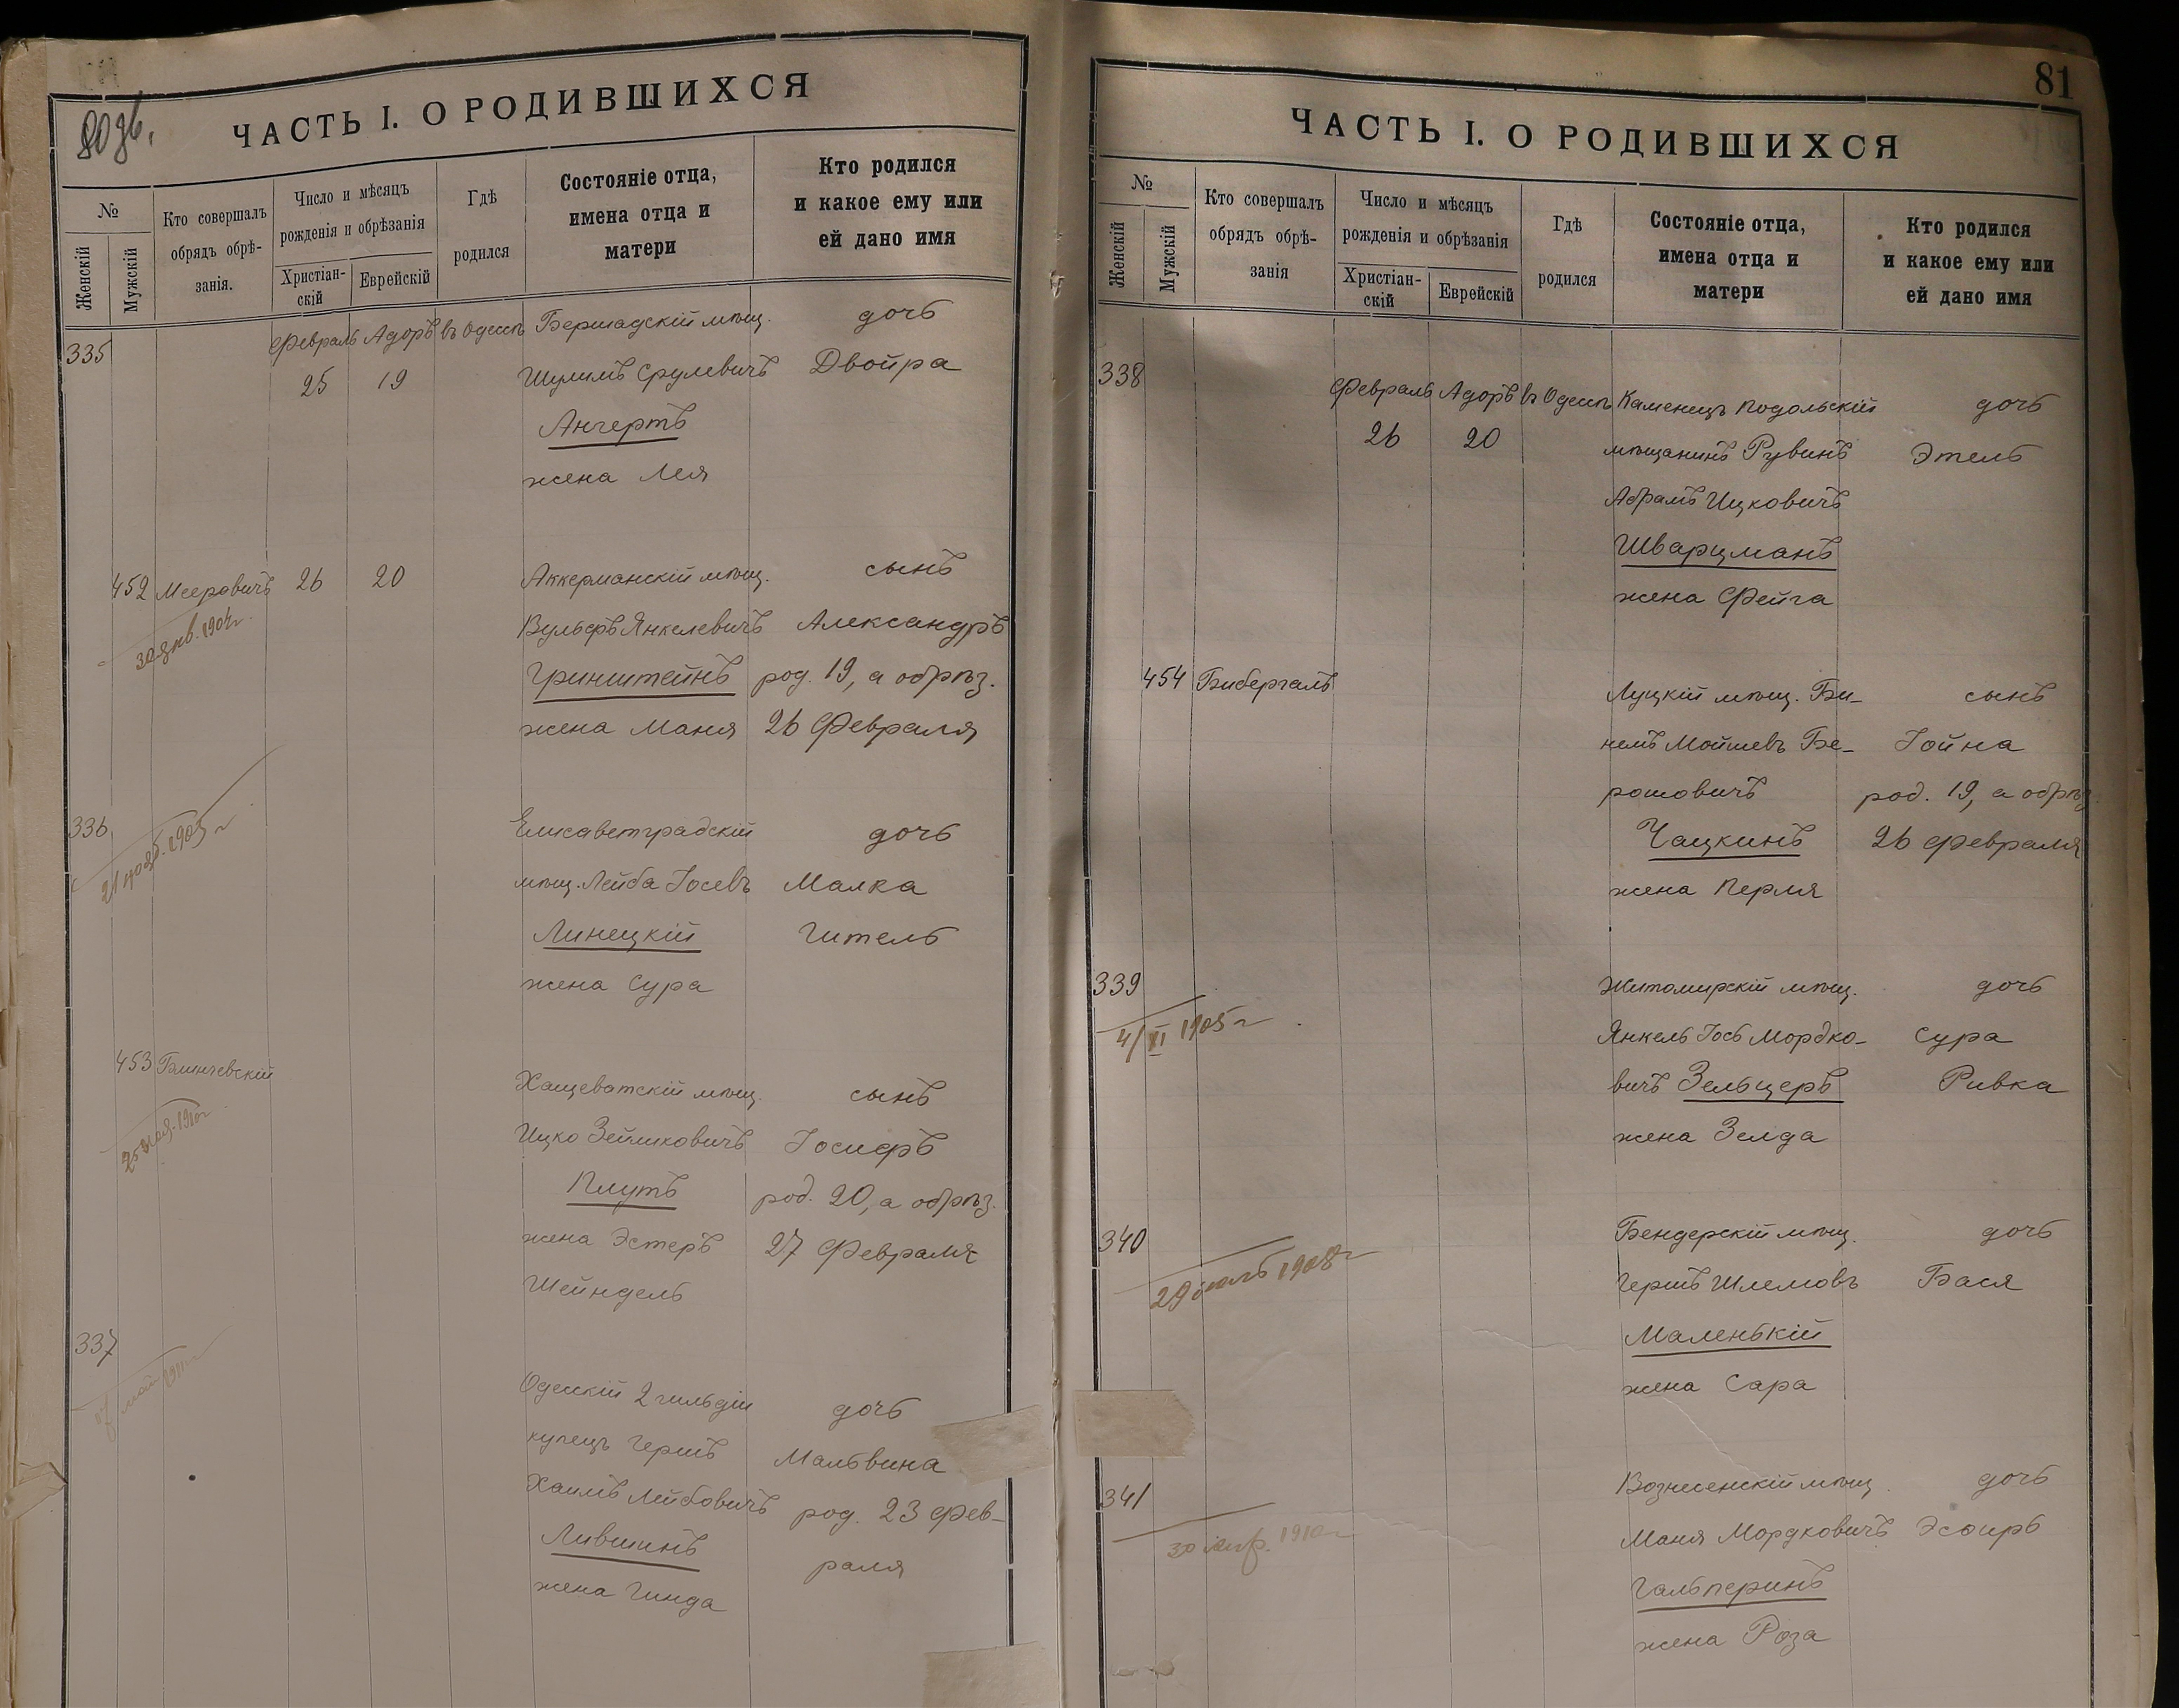 80 об.
ЧАСТЬ I. О РОДИВШИХСЯ
№
Женскій
Мужскій
Кто совершалъ
обрядъ обрѣ-
занія.
Число и мѣсяцъ
рожденія и обрѣзанія
Христіан-
скій
Еврейскій
Гдѣ
родился
Состояніе отца,
имена отца и
матери
Кто родился
и какое ему или
ей дано имя
335 Февраль Адоръ въ Одессѣ Бершадскій мѣщ. дочь
25 19 Шулимъ Срулевичъ Двойра
Ангертъ
жена Лея
452 Мееровичъ 26 20 Аккерманскій мѣщ. сынъ
30 янв. 1904 г. Вульфъ Янкелевичъ Александръ
Гринштейнъ род. 19, а обрѣз.
жена Маня 26 Февраля
336 Елисаветградскій дочь
21 нояб. 1903 г мѣщ. Лейба Іосевъ Малка
Линецкій Гитель
жена Сура
453 Блинчевскій Хащеватскій мѣщ. сынъ
25 1910 г Ицко Зейликовичъ Іосифъ
Плутъ род. 20, а обрѣз.
жена Эстеръ 27 Февраля
Шейндель
337 Одесскій 2 гильдіи дочь
май купецъ Гершъ Мальвина
Хаимъ Лейбовичъ род. 23 Фев-
Лившинъ раля
жена Гинда
81
ЧАСТЬ I. О РОДИВШИХСЯ
№
Женскій
Мужскій
Кто совершалъ
обрядъ обрѣ-
занія
Число и мѣсяцъ
рожденія и обрѣзанія
Христіан-
скій
Еврейскій
Гдѣ
родился
Состояніе отца,
имена отца и
матери
Кто родился
и какое ему или
ей дано имя
338 Февраль Адоръ въ Одессѣ Каменецъ Подольскій дочь
26 20 мѣщанинъ Рувинъ Этель
Абрамъ Ицковичъ
Шварцманъ
жена Фейга
454 Бибергалъ Луцкій мѣщ. Би- сынъ
немъ Мойшевъ Бе- Іойна
рошовичъ род. 19, а обрѣз.
Чацкинъ 26 Февраля
жена Перля
339 Житомирскій мѣщ. дочь
4/XI 1905 г Янкель Іось Мордко- Сура
вичъ Зельцеръ Ривка
жена Зелда
340 Бендерскій мѣщ. дочь
29 1908 г Гершъ Шлемовъ Бася
Маленькій
жена Сара
341 Вознесенскій мѣщ. дочь
30 апр. 1910 г Маня Мордковичъ Эсѳирь
Гальперинъ
жена Роза